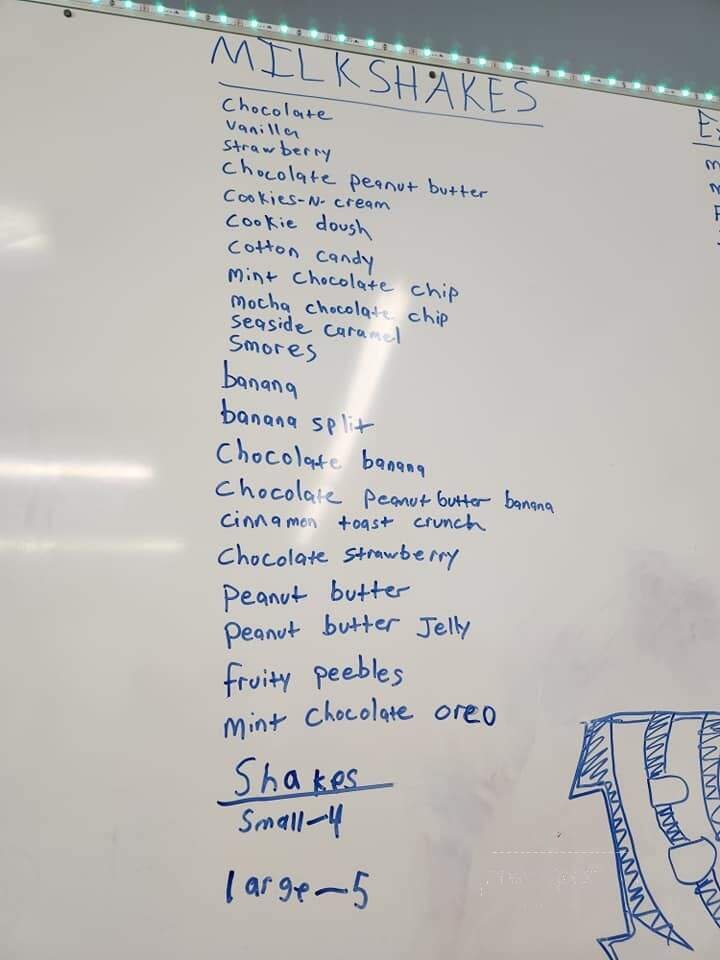 MILKSHAKES
Chocolate
Vanilla
Strawberry
Chocolate peanut butter
Cookies-N-cream
Cookie dough
Cotton candy
Mint Chocolate chip
Mocha chocolate chip
Seaside caramel
Smores
banana
banana split
Chocolate banana
Chocolate Peanut butter banana
Cinnamon toast crunch
Chocolate Strawberry
Peanut butter
Peanut butter Jelly
fruity peebles
Mint Chocolate oreo
Shakes
Small-4
large-5